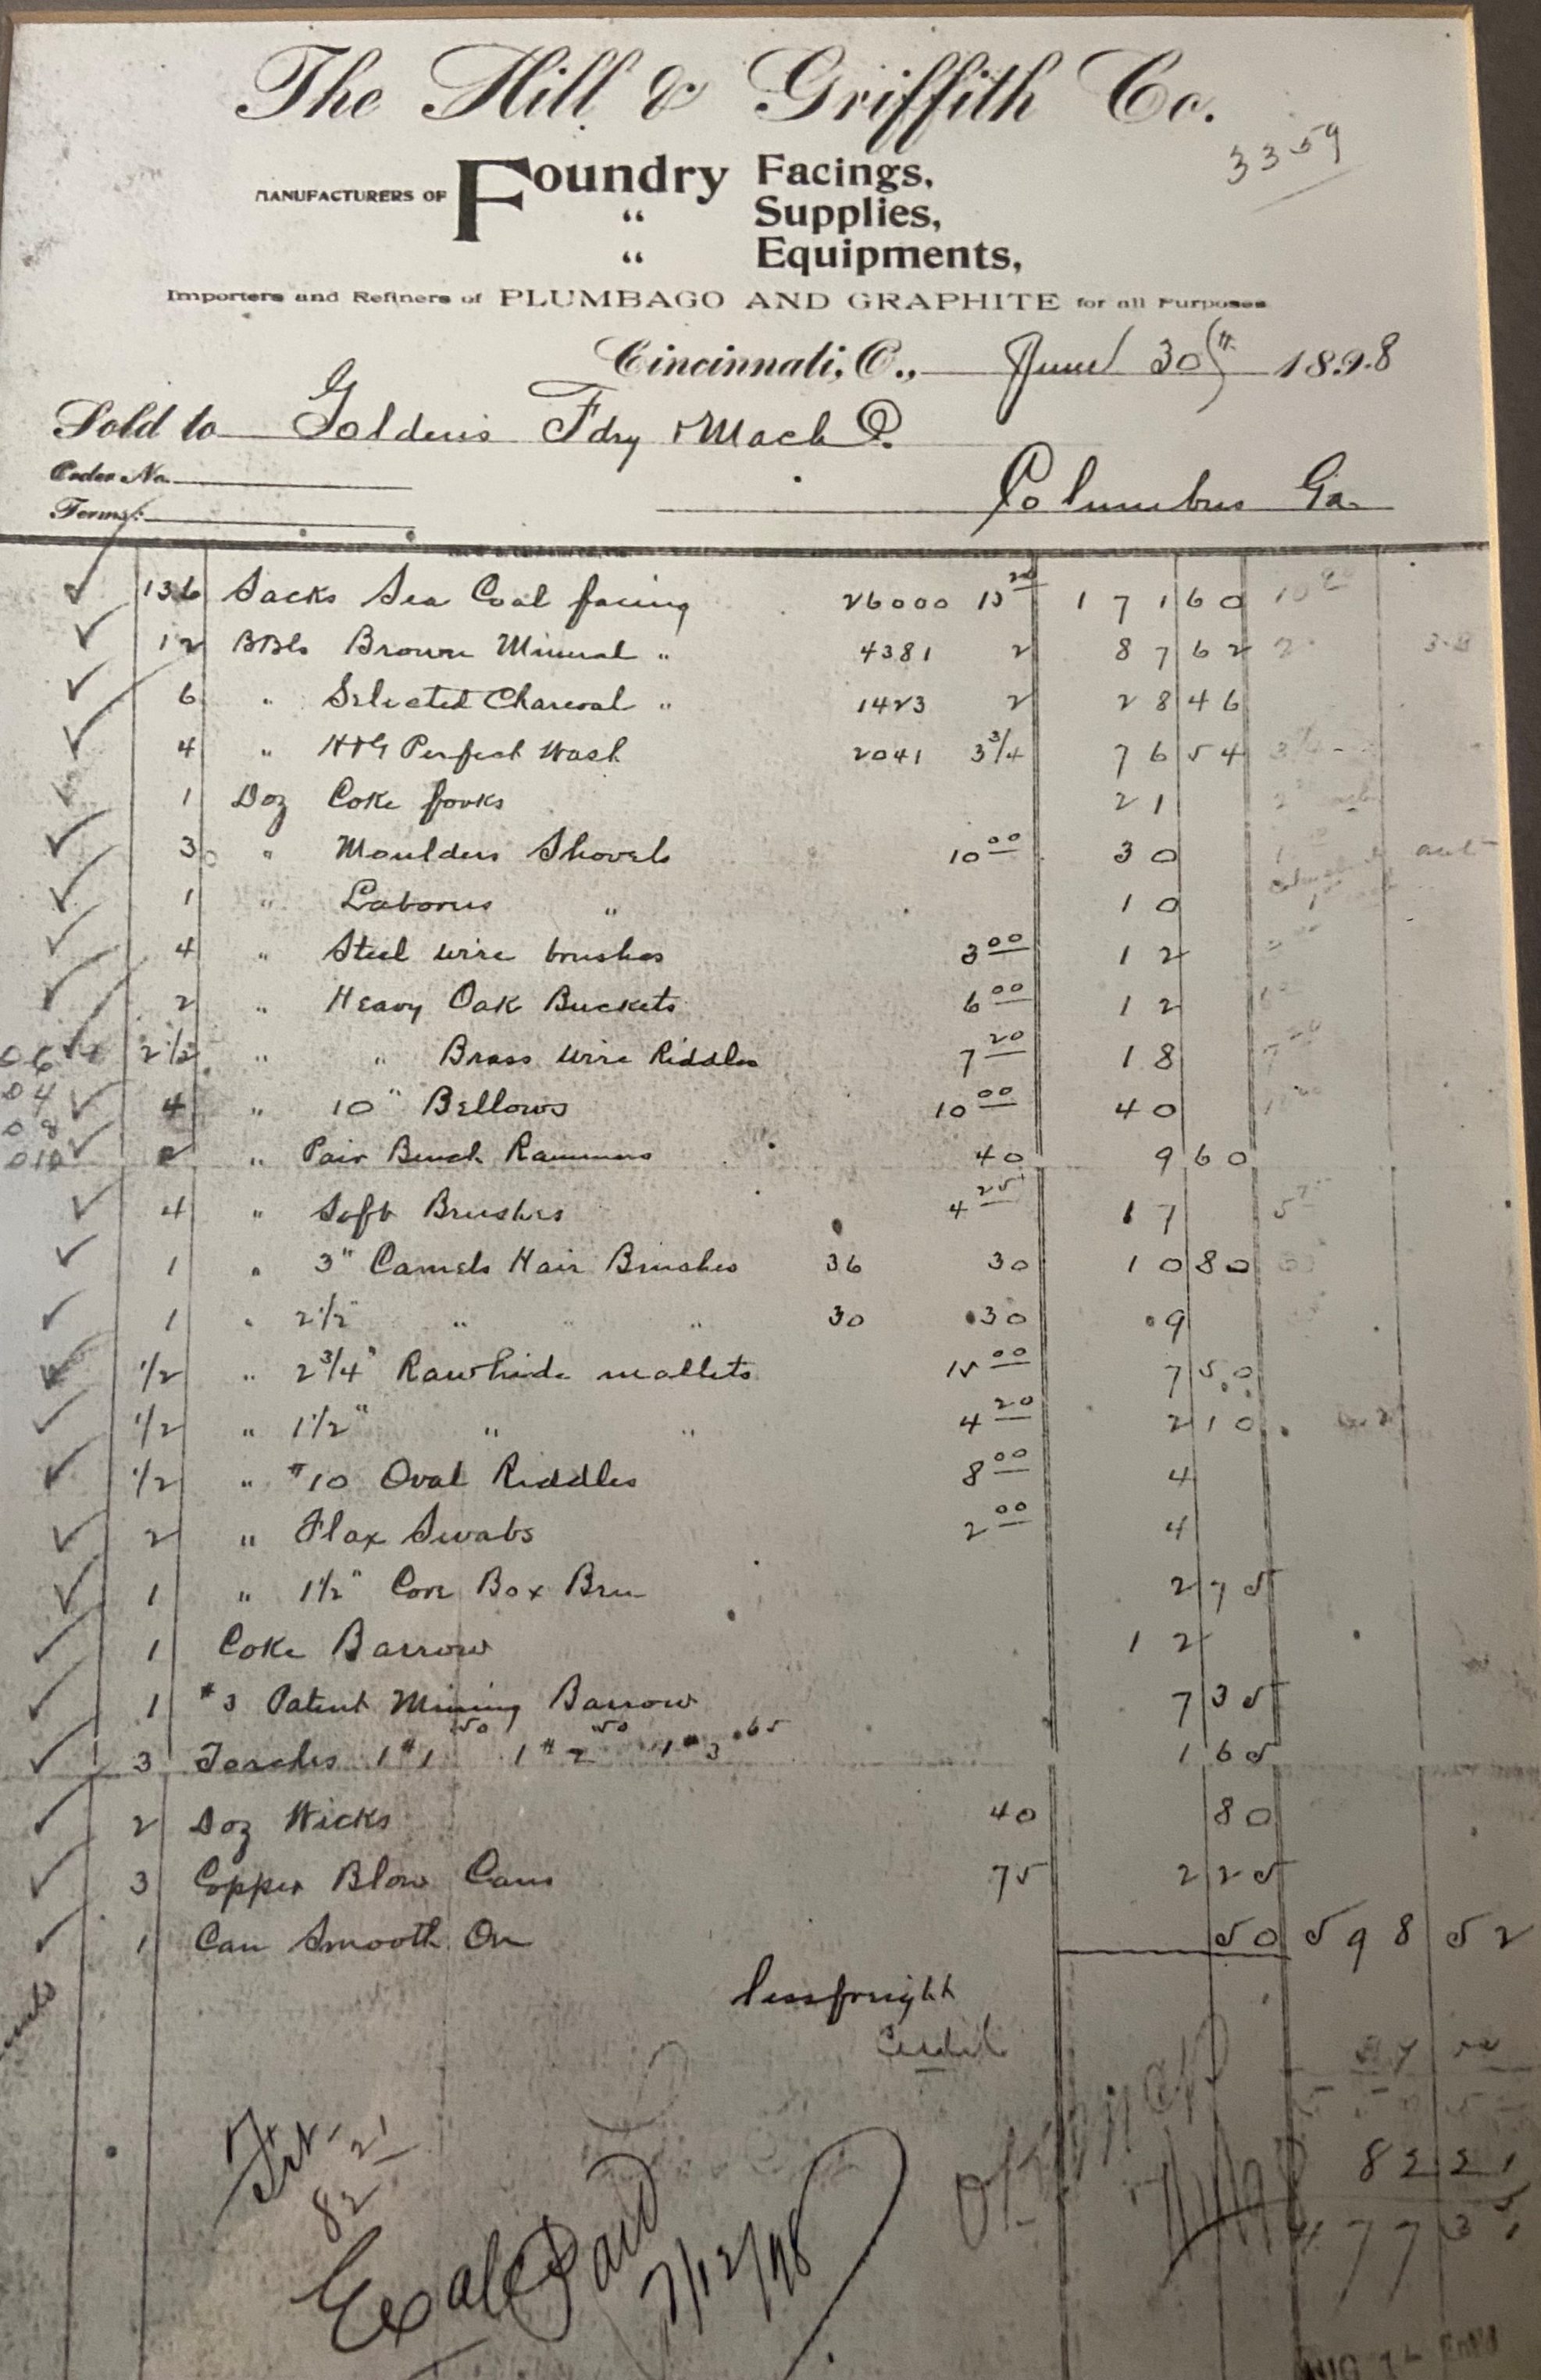 The Hill & Griffith Co.
3359
MANUFACTURERS OF Foundry Facings,
" Supplies,
" Equipments,
Importers and Refiners of PLUMBAGO AND GRAPHITE for all Purposes
Cincinnati, O., June 30th 1898
Sold to Goldens Fdry & Mach Co.
Order No.
Terms:
Columbus Ga.
136 Sacks Sea Coal facing 26000 13 20 171 60
12 BBls Brown Mineral " 4381 2 87 62
6 " Selected Charcoal " 1423 2 28 46
4 " H&G Perfect Wash 2041 3 3/4 76 54
1 Doz Coke forks 21
3 " Moulders Shovels 10 00 30
1 " Laborers " 10
4 " Steel wire brushes 3 00 12
2 " Heavy Oak Buckets 6 00 12
2 1/2 " " Brass Wire Riddles 7 20 18
4 " 10" Bellows 10 00 40
2 " Pair Bench Rammers 40 9 60
4 " Soft Brushes 4 25 17
1 " 3" Camels Hair Brushes 36 30 10 80
1 " 2 1/2" " " " 30 30 9
1/2 " 2 3/4" Rawhide mallets 15 00 7 50
1/2 " 1 1/2" " " 4 20 2 10
1/2 " #10 Oval Riddles 8 00 4
2 " Flax Swabs 2 00 4
1 " 1 1/2" Core Box Bru 2 75
1 Coke Barrow 12
1 #3 Patent Mining Barrow 7 35
3 Torches 1 #1 50 1 #2 50 1 #3 .65 1 65
2 Doz Wicks 40 80
3 Copper Blow Cans 75 2 25
1 Can Smooth On 50 598 52
less freight
Frt 82 21
82 21
477 31
Paid 7/12/98